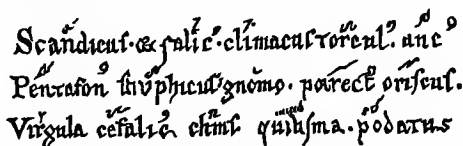 Scandicus · & salicꝰ · climacus torculꝰ · ancꝰ
Pentafonꝰ strophicus gnomo · porrectꝰ oriscus.
Virgula cefalicꝰ clinis quilisma · podatus